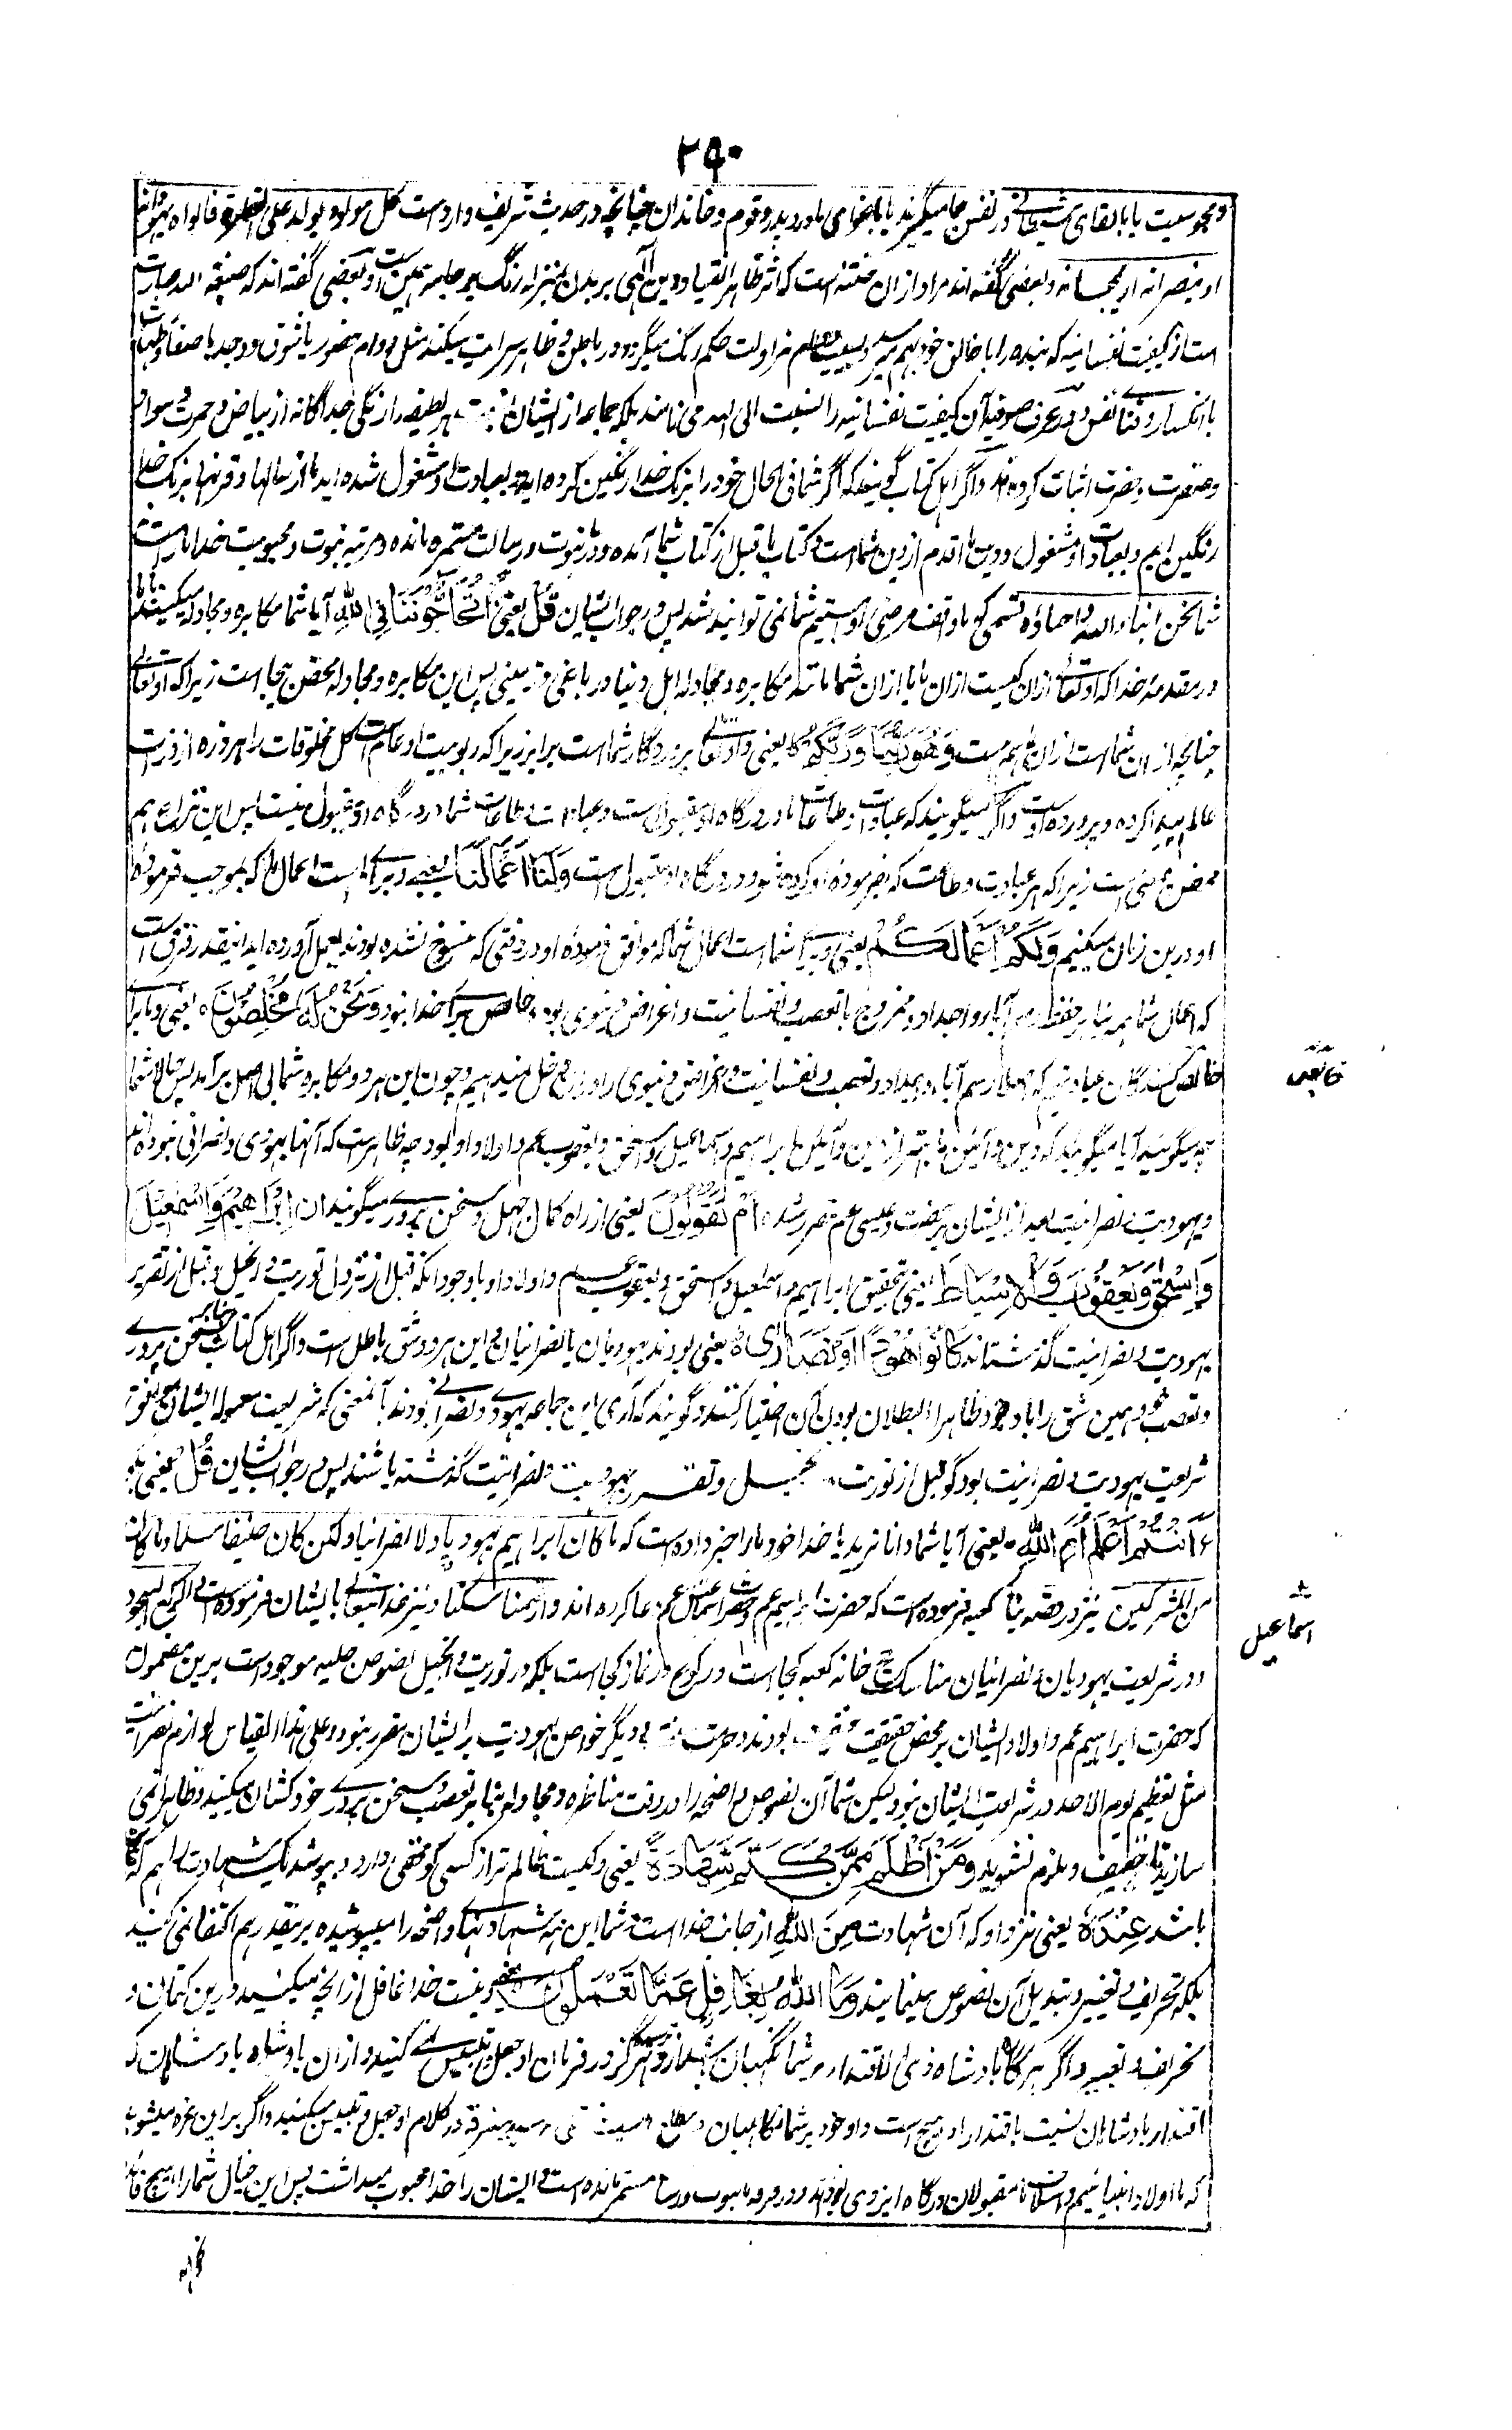 ۲۹۰
و مجوسیت یا بالقای شیطانی در نفس جا میگیرند یا بنحوامی مادر و پدر و قوم و خاندان چنانچه در حدیث شریف وارد ست کل مولود یولد علی الفطرة فابواه یهودانه
او ینصرانه او یمجسانه و بعضی گفته اند مراد ازان ختنه است که اثر ظاهر انقیاد دین الهی بر بدن بمنزله رنگ بر جامه همین است و بعضی گفته اند که صبغة الله عبارت
است از کیفیت نفسانیه که بنده را با خالق خود بهم میرسد و بسبب مزاولت حکم رنگ میگیرد و در باطن و ظاهر سرایت میکند مثل دوام حضور یا شوق و وجد یا صفا و طهارت
یا انکسار و فنای نفس و در عرف صوفیه آن کیفیت نفسانیه را نسبت الی الله می نامند بلکه جماعه از ایشان هر لطیفه را رنگی جداگانه از بیاض و حمرت و سواد
و صفرت و خضرت اثبات کرده اند و اگر اهل کتاب گویند که اگر شما فی الحال خود را برنگ خدا رنگین کرده اید و بعبادت او مشغول شده اید ما از سالها و قرنها برنگ خدا
رنگین ایم و بعبادت او مشغول و دین ما اقدم از دین شما است و کتاب ما قبل از کتاب شما آمده و در ما نبوت و رسالت مستمر مانده و مرتبه نبوت و محبوبیت خدا ما راست
نحن ابناء الله و احباؤه قسمی که ما واقف مرضی او هستیم شما نمی توانید شد پس در جواب ایشان قُل یعنی بگو اَتُحَاجُّونَنَا فِی اللهِ آیا شما مکابره و مجادله میکنید با ما
در مقدمه خدا که او تعالی ازان کیست ازان ما یا ازان شما مانند مکابره و مجادله اهل دنیا در باغی و زمینی پس این مکابره و مجادله محض بیجا است زیرا که او تعالی
چنانچه ازان شما است ازان ما هم هست وَهُوَ رَبُّنَا وَرَبُّكُمْ یعنی و او تعالی پروردگار ما و پروردگار شما است برابر زیرا که ربوبیت او عام است کل مخلوقات را هر ذره از ذرات
عالم پیدا کرده و پرورده اوست و اگر میگویند که عبادات و طاعات ما در درگاه او مقبول است و عبادات و طاعات شما در درگاه او مقبول نیست پس این نزاع هم
محض بیمعنی است زیرا که هر عبادت و طاعت که بفرموده او کرده شود در درگاه او مقبول است وَلَنَا اَعْمَالُنَا یعنی و برای ما است اعمال ما که بموجب فرموده
او درین زمان میکنیم وَلَكُمْ اَعْمَالُكُمْ یعنی و برای شما است اعمال شما که موافق فرموده او در وقتی که منسوخ نشده بودند بعمل آورده اید اینقدر فرق است
که اعمال شما همه بنا بر حفظ رسم آبا و اجداد و ممزوج با تعصب و نفسانیت و اغراض دنیوی بود خالص برای خدا نبود وَنَحْنُ لَهُ مُخْلِصُونَ یعنی و ما برای
خالص کنندگان عبادتیم که اصلا رسم آبا و اجداد و تعصب و نفسانیت و اغراض دنیوی را دران دخل نمیدهیم و چون این هر دو مکابره شما بی اصل برآمد پس حالا شما
چه میگویید آیا میگویید که دین و آئین ما بهتر از دین و آئین ابراهیم و اسماعیل و اسحق و یعقوب عم و اولاد او بود چه ظاهر است که آنها یهودی و نصرانی نبوده اند
و یهودیت و نصرانیت بعد از ایشان بر حضرت موسی و عیسی عم مقرر شده اَمْ تَقُولُونَ یعنی از راه کمال جهل و سخن پروری میگویید اِنَّ اِبْرَاهِیْمَ وَاِسْمٰعِیْلَ
وَاِسْحٰقَ وَیَعْقُوْبَ وَالْاَسْبَاطَ یعنی بتحقیق ابراهیم و اسمعیل و اسحق و یعقوب علیهم السلام و اولاد او با وجود آنکه قبل از نزول توریت و انجیل و قبل از تقریر
یهودیت و نصرانیت گذشته اند كَانُوْا هُوْدًا اَوْ نَصَارٰی یعنی بودند یهودیان یا نصرانیان و این هر دو شق باطل است و اگر اهل کتاب بنابر سخن پروری
و تعصب خود همین شق را با وجود ظاهر البطلان بودن آن اختیار کنند و گویند که آری این جماعه یهودی و نصرانی بودند بآنمعنی که شریعت معموله ایشان موافق
شریعت یهودیت و نصرانیت بود گو قبل از توریت و انجیل و تقرر یهودیت و نصرانیت گذشته باشند پس در جواب ایشان قُلْ یعنی بگو
ءَاَنْتُمْ اَعْلَمُ اَمِ اللهُ یعنی آیا شما داناترید یا خدا خود ما را خبر داده است که ما کان ابراهیم یهودیا و لا نصرانیا و لکن کان حنیفا مسلما و ما کان
من المشرکین نیز در قصه بنای کعبه فرموده است که حضرت ابراهیم عم و حضرت اسماعیل عم دعا کرده اند و ارنا مناسکنا و نیز خدایتعالی بایشان فرموده است و الرکع السجود
و در شریعت یهودیان و نصرانیان مناسک حج خانه کعبه کجا است و رکوع در نماز کجا است بلکه در توریت و انجیل نصوص جلیه موجود است برین مضمون
که حضرت ابراهیم عم و اولاد ایشان بر محض حقیقت حنیفیت بودند و حرمت سبت و دیگر خواص یهودیت بر ایشان مقرر نبود و علی هذا القیاس لوازم نصرانیت
مثل تعظیم یوم الاحد در شریعت ایشان نبود لیکن شما آن نصوص واضحه را در وقت مناظره و مجادله بنابر تعصب و سخن پروری خود کتمان میکنید و ظاهر نمی
سازید تا خفیف و ملزم نشوید وَمَنْ اَظْلَمُ مِمَّنْ كَتَمَ شَهَادَةً یعنی و کیست ظالم تر از کسی که مخفی دارد و بپوشد یک شهادت را هم که
باشد عِنْدَهُ یعنی نزد او که آن شهادت مِنَ اللهِ از جانب خدا است و شما این همه شهادتهای واضحه را میپوشید و برینقدر هم اکتفا نمی کنید
بلکه تحریف و تغییر و تبدیل آن نصوص مینمایید وَمَا اللهُ بِغَافِلٍ عَمَّا تَعْمَلُوْنَ یعنی و نیست خدا غافل از آنچه میکنید درین کتمان و
تحریف و تغییر و اگر هرگاه بادشاه ذی الاقتدار بر شما نگهبان هرگز در فرمان او جعل و تلبیس نمی کنید و ازان بادشاه بادشاهان که
اقتدار بادشاهان نسبت باقتدار او هیچ است و او خود بر شما نگاهبان در کلام او جعل و تلبیس میکنید و اگر براین غره میشوید
که ما اولاد انبیائیم و اسلاف ما مقبولان درگاه ایزدی بودند و در فرقه ما نبوت و رسالت مستمر مانده است و ایشان را خدا محبوب میداشت پس این خیال شما را هیچ فائده
اسماعیل